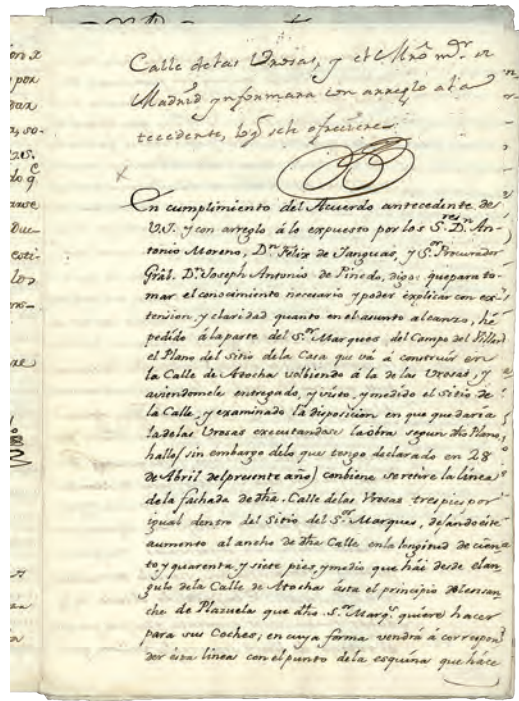 Calle de las Urosas, y el Mrõ mr. de
Madrid ynformara con arreglo al a
tecedente, lo q̃ se le ofreciere
En cumplimiento del Acuerdo antecedente de
V.I. y con arreglo á lo expuesto por los Sres. Dn. An-
tonio Moreno, Dn. Felix de Yanguas, y Sor. Procurador
Grâl. Dn. Joseph Antonio de Pinedo, digo: que para to-
mar el conocimiento necesario y poder explicar con ex-
tension, y claridad quanto en el asunto alcanzo, hé
pedido á la parte del Sor. Marques del Campo del Villar
el Plano del Sitio de la Casa que vá á construir en
la Calle de Atocha volbiendo á la de las Urosas, y
aviendomele entregado, y visto, y medido el Sitio de
la Calle, y examinado la disposicion en que quedaría
la de las Urosas executandose la obra segun dho Plano,
hallo (sin embargo de lo que tengo declarado en 28
de Abril del presente año) conbiene se retire la linea
de la fachada de dha. Calle de las Urosas tres pies por
igual dentro del Sitio del Sor. Marques, dejando este
aumento al ancho de dha Calle en la longitud de cien-
to y quarenta, y siete pies, y medio que hái desde el an-
gulo de la Calle de Atocha ásta el principio del ensan-
che de Plazuela que dho. Sor. Marqs. quiere hacer
para sus Coches; en cuya forma vendrá á correspon-
der esta linea con el punto de la esquina que háce